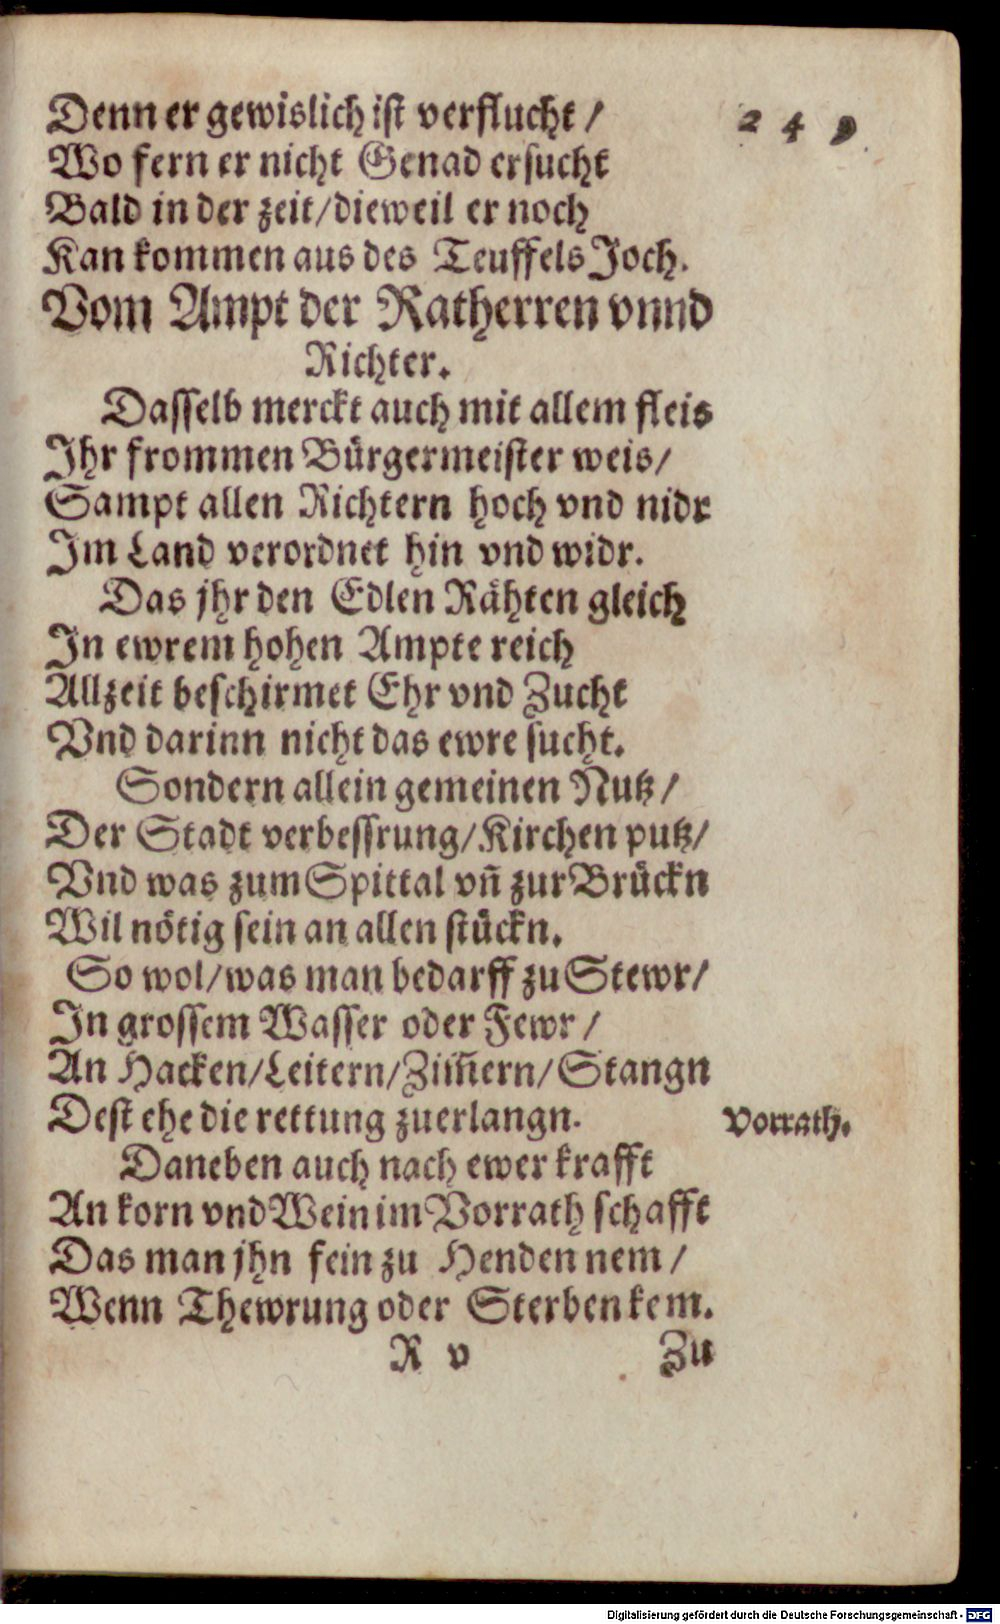 Denn er gewislich ist verflucht /
249.
Wo fern er nicht Genad ersucht
Bald in der zeit/dieweil er noch
Kan kommen aus des Teuffels Joch.
Vom Ampt der Ratherren vnnd
Richter.
Dasselb merckt auch mit allem fleis
Ihr frommen Bürgermeister weis/
Sampt allen Richtern hoch vnd nidr
Im Land verordnet hin vnd widr.
Das jhr den Edlen Rähten gleich
In ewrem hohen Ampte reich
Allzeit beschirmet Ehr vnd Zucht
Vnd darinn nicht das ewre sucht.
Sondern allein gemeinen Nutz/
Der Stadt verbessrung/Kirchen putz/
Vnd was zum Spittal vn̄ zur Brückn
Wil nötig sein an allen stückn.
So wol/was man bedarff zu Stewr/
In grossem Wasser oder Fewr /
An Hacken/Leitern/Zim̄ern/Stangn
Dest ehe die rettung zuerlangn.
Vorrath.
Daneben auch nach ewer krafft
An korn vnd Wein im Vorrath schafft
Das man jhn fein zu Henden nem /
Wenn Thewrung oder Sterben kem.
R v
Zu
Digitalisierung gefördert durch die Deutsche Forschungsgemeinschaft - DFG